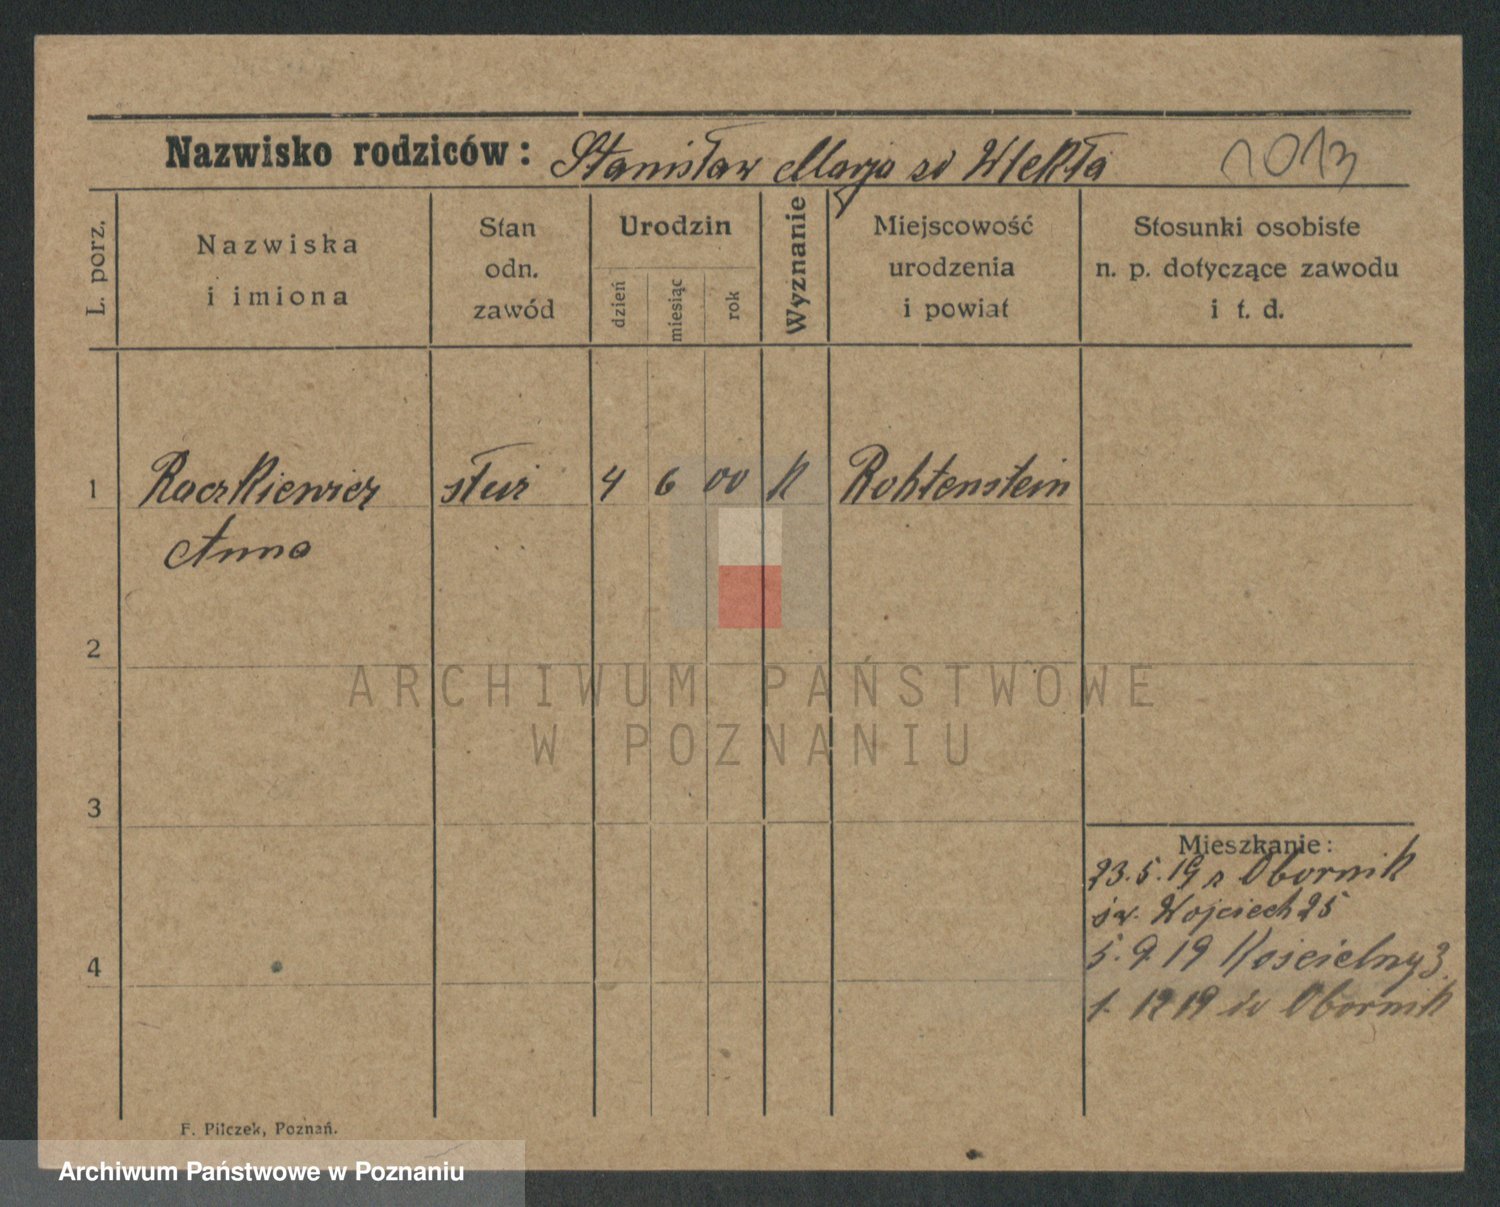 Nazwisko rodziców: Stanisław Marja zd Wlekła 1013
L. porz.
Nazwiska i imiona
Stan odn. zawód
Urodzin
dzień miesiąc rok
Wyznanie
Miejscowość urodzenia i powiat
Stosunki osobiste n. p. dotyczące zawodu i t. d.
1 Raczkiewicz służ 4 6 00 K Rohtenstein
Anna
2
ARCHIWUM PAŃSTWOWE
W POZNANIU
3
Mieszkanie:
23.5.19 z Obornik
św. Wojciech 25
4
5.9 19 Kościelny 3.
1. 12 19 do Obornik
F. Pilczek, Poznań.
Archiwum Państwowe w Poznaniu